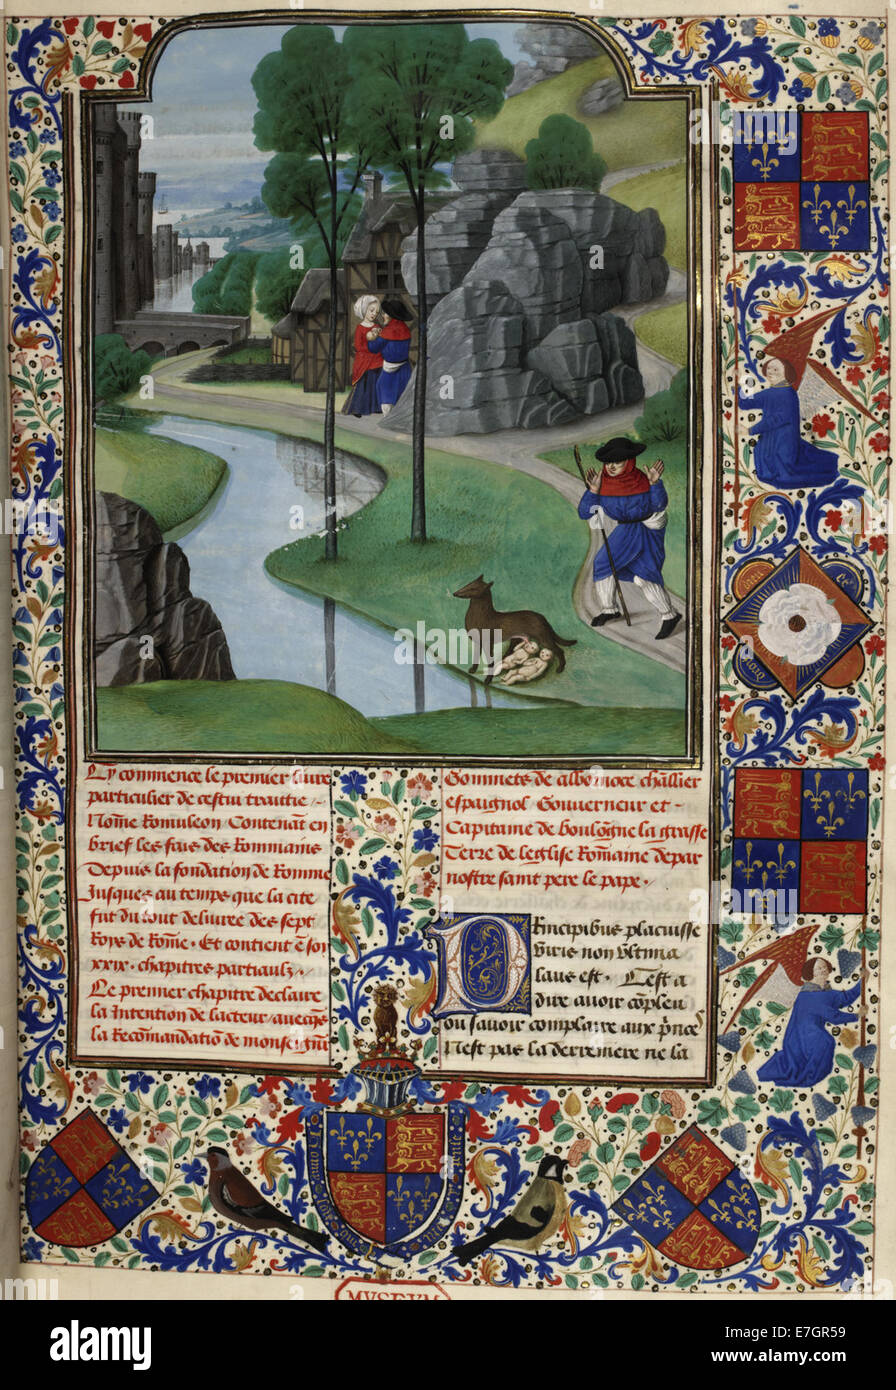 Cy commence le premier livre
particulier de cestui traittie
nōme Romuleon. Contenāt en
brief les fais des Rommains
Depuis la fondation de Romme
Jusques au temps que la cite
fut du tout deliuree des sept
Roys de Rōme. Et contient ē soy
xxix. chapitres partiaulz.
Le premier chapitre declaire
la Intention de lacteur / auecqs
la Recōmandatiō de monseignr
Gommets de albornoce challier
espaignol Gouuerneur et
Capitaine de boulōgne la grasse
Terre de leglise Rōmaine de par
nostre saint pere le pape.
Principibus placuisse
viris non vltima
laus est. Cest a
dire auoir cōpleu
ou sauoir complaire aux prīces
Nest pas la derreniere ne la
dieu et
droit
Honny soit qui mal y pense
MVSEVM
alamy
Image ID: E7GR59
www.alamy.com